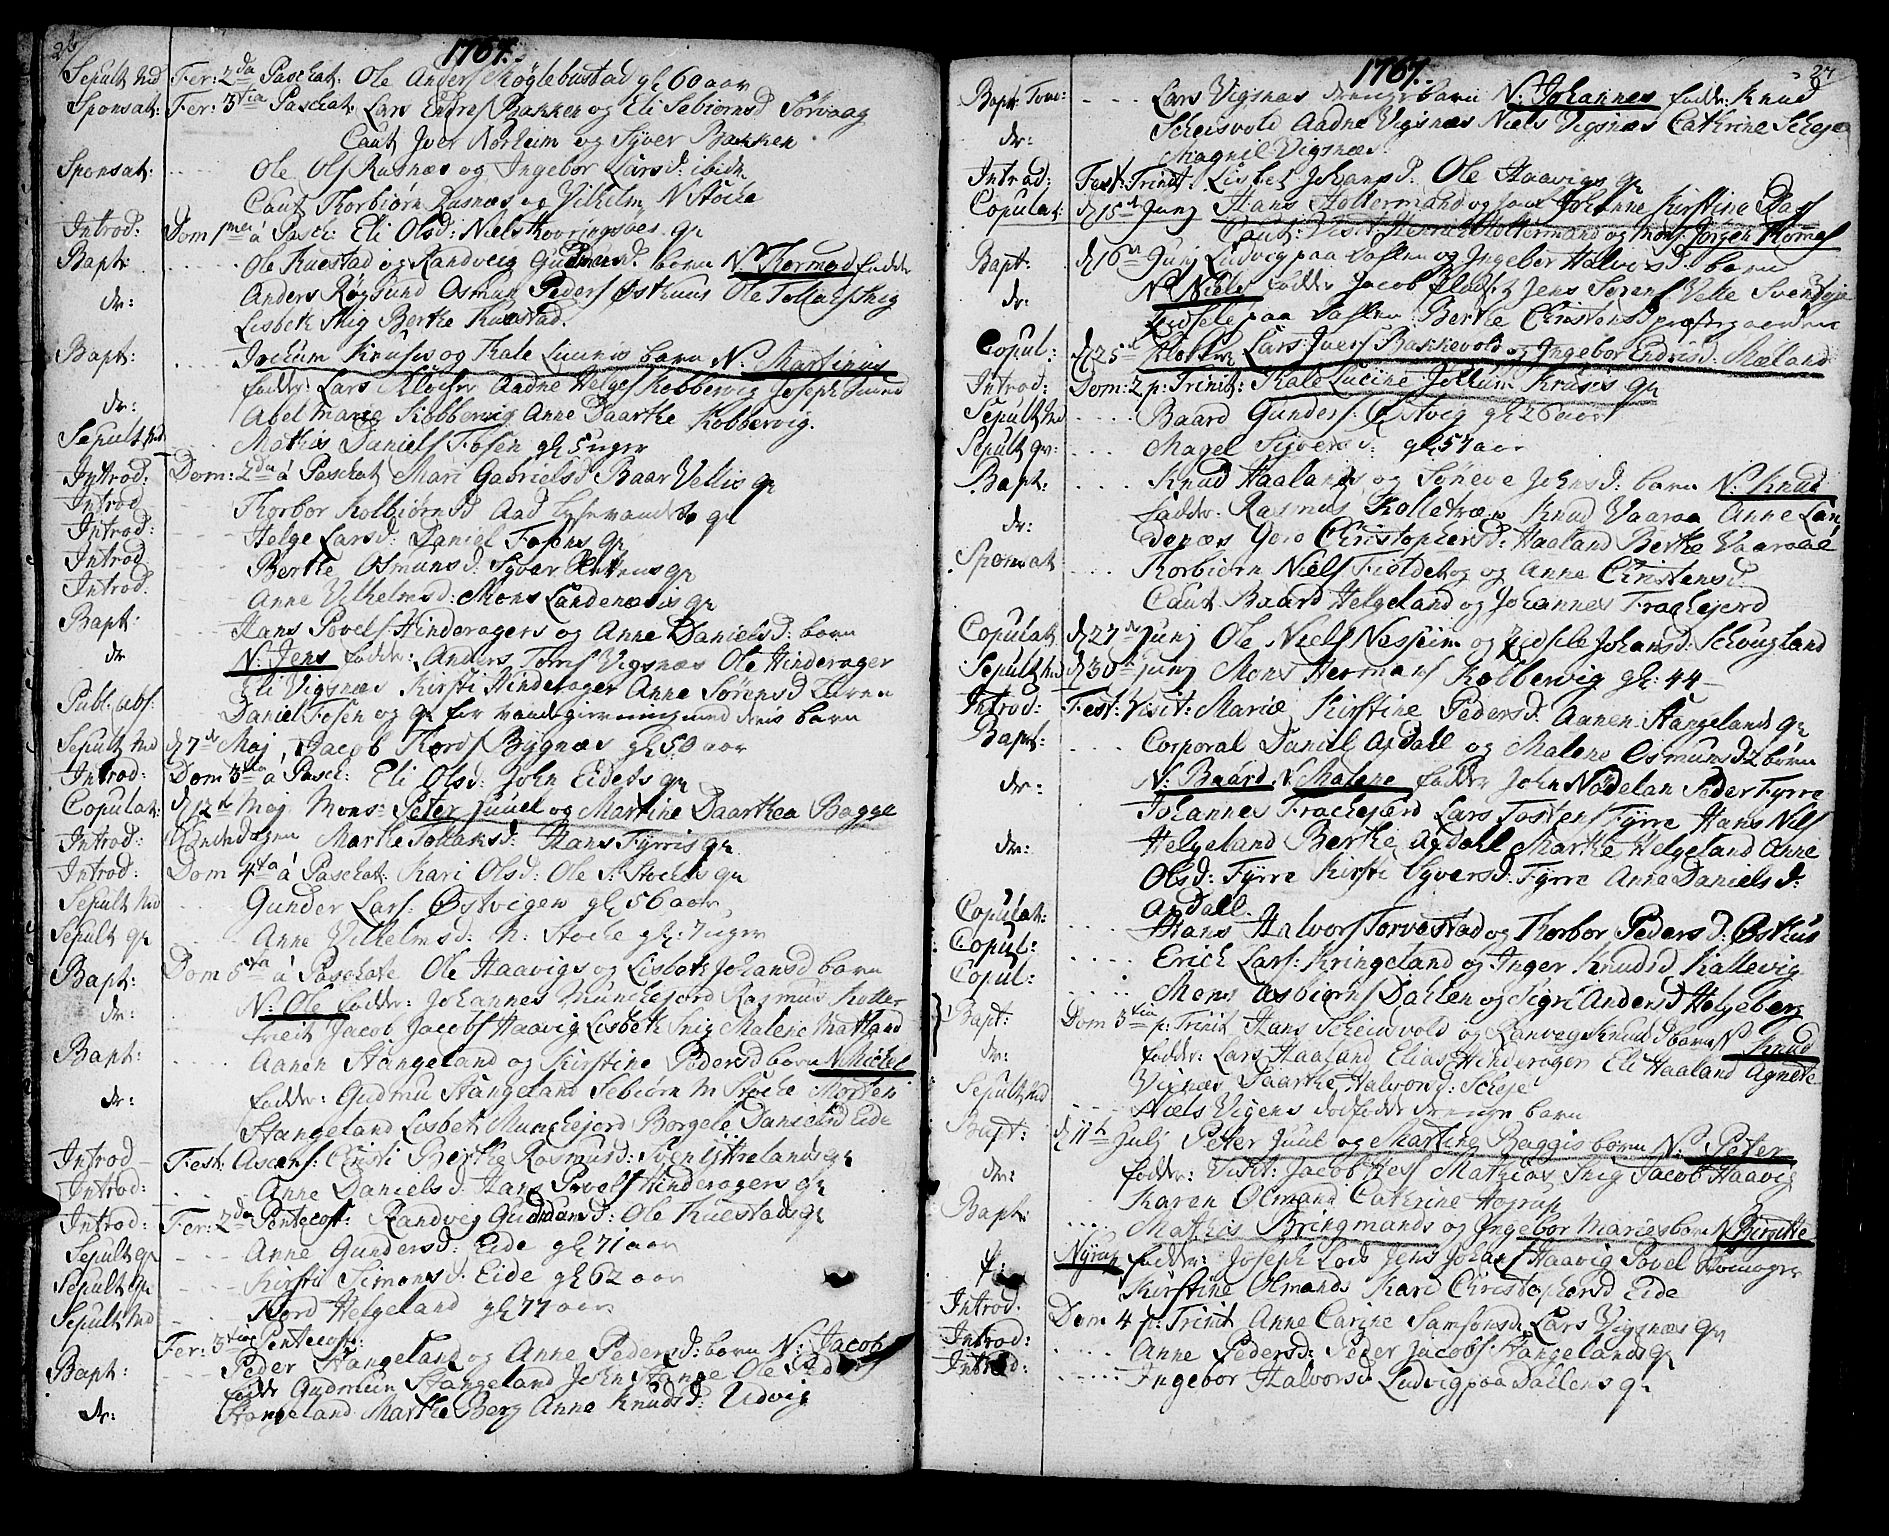 26
1767.
Sepult Md Fer: 2da Paschat: Ole Anders Røglebustad gl 60 aar
Sponsat: Fer: 3tia Paschat: Lars Endres Bakken og Eli Sebiørnsd Sørvaag
Caut Iver Norheim og Syver Bakken
Sponsat: Ole Ols Rusnæs og Ingebor Larsd: ibid:
Caut Thorbiørn Rasnæs og Vilhelm N Stocke
Introd: Dom 1ma á Pasch: Eli Olsd: Niels Kovringsøes qv
Bapt: Ole Tuestad og Randveig Gudmunsd: barn N: Thormod fadde
dr: Anders Røgsund Osmun Peders Østhuus Ole Tollags Snig
Lisbet Snig Berthe Tuestad.
Bapt: Jochum Kruses og Kale Lucinis barn N: Martinus
fadder: Lars Aadne Helges Kobbervig Joseph Sund
dr: Abel marie Kobbervig Anne Daarthe Kobbervig.
Sepult Md Mathis Daniels Fosen gl 5 uger
Introd: Dom: 2da á Paschat Mari Gabrielsd Baar Vellis qv
Introd Thorbor Kolbiørnsd Aad Lysevandets qv
Introd: Helge Larsd: Daniel Fosens qv
Introd Berthe Osmunsd: Syver Rettens qv
Introd: Anne Vilhelmsd: Mons Landenæsis qv
Bapt: Hans Povels Hinderagers og Anne Danielsd: barn
dr N: Jens fadder: Anders Tores Vigsnæs Ole Hinderager
Eli Vigsnæs Kirsti Hinderager Anne Sørensd
Publ: abs: Daniel Fosen og qv for deris barn
Sepult Md d 7de Maj Jacob Thords Bygnæs gl 50 aar
Introd: Dom 3tia á Pasch: Eli Olsd: John Eidets qv
Copulat: d 12te Maj Mons: Peter Juuel og Martine Daarthea Bagge
Introd: Marthe Tollaksd: Hans Fyrris qv
Introd: Dom 4ta á Paschat: Kari Olsd: Ole N: Stockes qv
Sepult Md Gunder Lars: Østvigen gl 56 aar
Sepult qv Anne Vilhelmsd: N: Stocke gl: 7 uger
Bapt: Dom 5ta á Paschate Ole Haavigs og Lisbeth Johansd barn
dr: N: Ole fadder: Johannes Munchejord Rasmus Kolle
treit Jacob Jacobs Haavig Lisbet Snig Malene Matland
Bapt: Aanen Stangeland og Kirstine Pedersd barn N Michel
dr: fadder: Gudmu Stangeland Sebiørn M Stocke Morten
Stangeland Lisbet Munchejord Borgele Danielsd Eide
Introd Fest: Ascens: Cristi Berthe Rasmusd: Sven Ytrelands qv
Introd: Anne Danielsd: Hans Povels Hinderagers qv
Introd: Fer: 2da Pentecost: Randveg Gudmunsd: Ole Tuestads qv
Sepult qv Anne Gundersd: Eide gl 71 aar
Sepult qv Kirsti Simonsd: Eide gl 62 aar
Sepult Md Nord Helgeland gl 77 aar
Fer: 3tia Pentecost:
Bapt: Peder Stangeland og Anne Pedersd: barn N: Jacob
fadde Gudmun Stangeland John Stange Ole
dr: Stangeland Marthe Berg Anne Knudsd: Udvig
27
1767.
Bapt: Tom: Lars Vigsnæs drengebarn N: Johannes fadde: Knud
dr: Scheisvold Aadne Vigsnæs Niels Vigsnæs Cathrine Scheje
Magnil Vigsnæs.
Introd: Fest: Trinit: Lisbet Johansd: Ole Haavigs qv
Copulat: d 15de Junj Hans Holtermand og Johanne Kirstine Das
Caut: Visit: Henric Holtermand og Mons: Jørgen
Bapt: d 16de Junj Ludvig paa Dahlen og Ingebor Halvorsd: barn
dr: N: Niels fadder Jacob Jens Sørens Velle Svend
paa Dahlen Berthe Christensd præstegaarden
Copul: d 25de Lars Ivers Bakkevold og Ingebor Endresd: Mæland
Introd: Dom: 2 p: Trinit: Kale Lucine Jochum Kruses qv
Sepult Md Baard Gunders: Østvig gl 26 aar
Sepult qv: Magel Syversd: gl 57 aar
Bapt: Knud Haalands og Søneve Johnsd: barn N: Knud
dr: fadder: Rasmus Kolletræe Knud Vaaraa Anne Lan
denæs Goro Christophersd: Haaland Berthe Vaaraae
Sponsat Thorbiørn Niels Fioldet og Anne Christensd
Caut Baard Helgeland og Johannes Frachejord
Copulat d 27de Junj Ole Niels Nesheim og Johansd: Schougland
Sepult Md d 30te Junj Mons Hermans Kobbervig gl: 44
Introd: Fest: Visit: Mariæ Kirstine Pedersd: Aanen Stangelands qv
Bapt: Corporal Daniel Agdall og Malene Osmunsd 2 børn
dr: N: Baard N Malene fadder John Nødelan Peder Fyrre
Johannes Frachejord Lars Tostens Fyrre Hans Nils
dr: Helgeland Berthe Agdall Marthe Helgeland Anne
Olsd: Fyrre Kirsti Syversd: Fyrre Anne Danielsd:
Agdall
Copulat: Hans Halvors Torvestad og Thorbor Pedersd: Østhus
Copul: Erich Lars: Kringeland og Inger Knudsd Kallevig
Copul: Mons Asbiørns Dahlen og Sigri Andersd Helgeberg
Bapt: Dom 3tia p: Trinit Hans Scheisvold og Ranveg Knudsd barn N Knud
dr: fadder: Lars Haaland Elias Hinderager Eli Haaland Agnete
Vigsnæs Daarthe Halvorsd: Scheje
Sepult Md Niels Vigens drenge barn
Bapt: d 11te Julj Peter Juul og Martine Baggis barn N: Peter
dr: fadder: Visit: Jacob Kes Mathias Snig Jacob Haavig
Karen Olmand Catrine Hograp
Bapt: Mathis Bringmands og Ingebor Maries barn N Birgitte
Nyrup fadder: Joseph Lod Jens Johans Haavig Povel
Kirstine Olmands Kari Christophersd Eide
Introd: Dom 4 p: Trinit Anne Carine Samsonsd: Lars Vigsnæs qv
Introd: Anne Pedersd: Peder Jacobs: Stangelands qv
Introd: Ingebor Halvorsd Ludvig paa Dallens qv